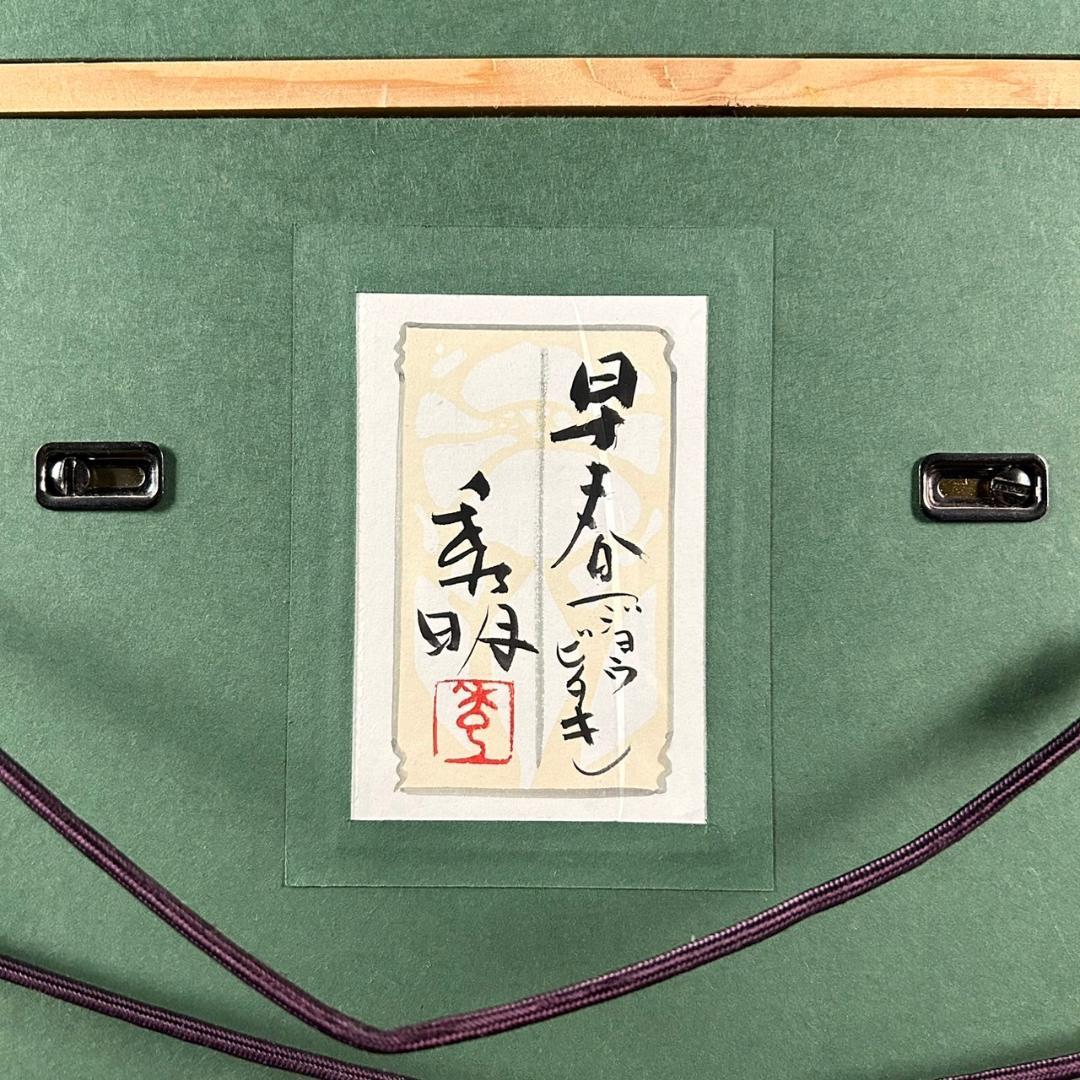 早春(ジョウ
ビタキ)
秀明